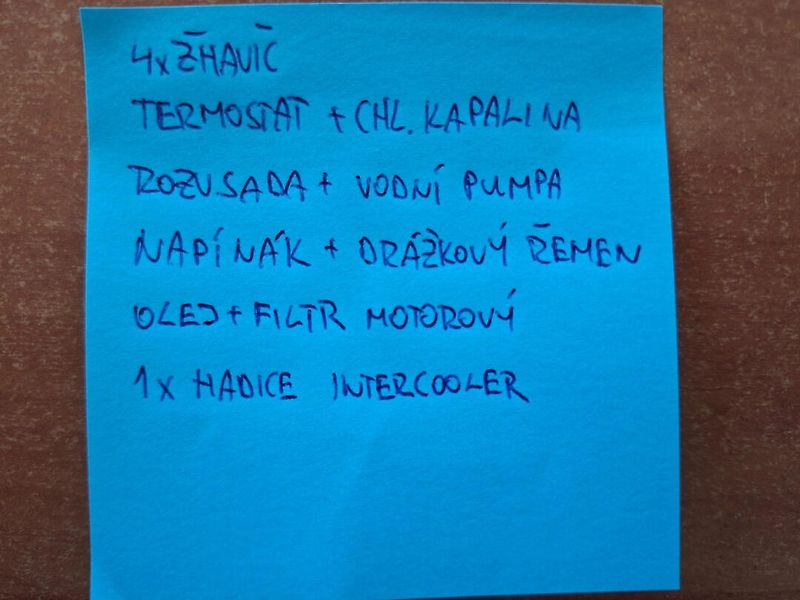 4x ŽHAVIČ
TERMOSTAT + CHL. KAPALINA
ROZV.SADA + VODNÍ PUMPA
NAPÍNÁK + DRÁŽKOVÝ ŘEMEN
OLEJ + FILTR MOTOROVÝ
1x HADICE INTERCOOLER